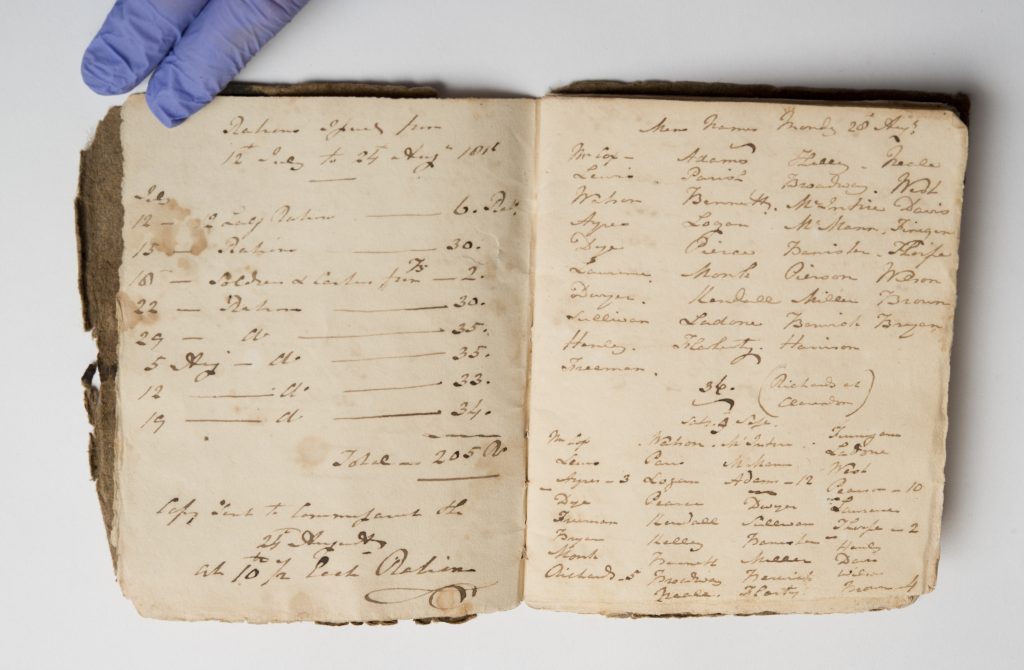 Rations Issued from
12th July to 24th Augt 181
Jul
12 — 2 Lady Rations — 6. Rat.
15 — Rations — 30.
18th — Soldiers & — 2.
22 — Rations — 30.
29 — do — 35.
5 Aug — do — 35.
12 — do — 33.
19 — do — 34.
Total — 205 R
Copy Sent to Commissariat the
24th August
at 10 1/2 Each Ration
Mens Names Monday 28th Augt
McCoy — Adams Kelley . Neale
Lewis . Parish Broadway . West
Watson Bennett . McIntire Davis
Ayres Logan . McMann . Finigan
Dye Pierce Banister . Thorpe
Laurence Monk Pierson Wilson
Dwyer . Kendall Miller Brown
Sullivan Ladone Berwick Bryan
Henley . Flaherty . Harrison
Freeman .
36. (Richards at
Clarendon)
Saty 9 Sept.
McCoy . Watson . McIntire . Finnigan
Lewis Paris McMann Ladone
Ayres — 3 Logan Adams — 12 West
Dye Pearce Dwyer Pearson — 10
Freeman Kendall Sullivan Laurence
Bryan Kelley Banister Thorpe — 2
Monk Bennett Miller Henly
Richards — 5 Broadway Berwick Davis
Neale . Flarty . Wilson
Brown — 4